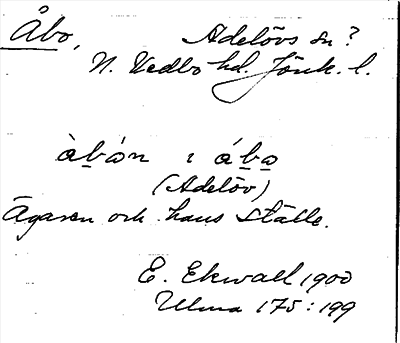 Åbo, Adelövs sn?
N. Vedbo hd. Jönk. l.
àbón i ábo
(Adelöv)
Ägaren och hans ställe.
E. Ekwall 1900
Ulma 175:199